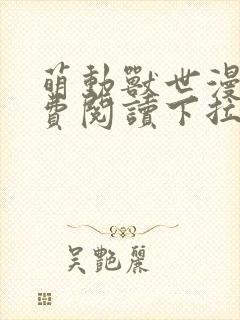 萌動獸世漫
費閱讀下拉
吳艷麗